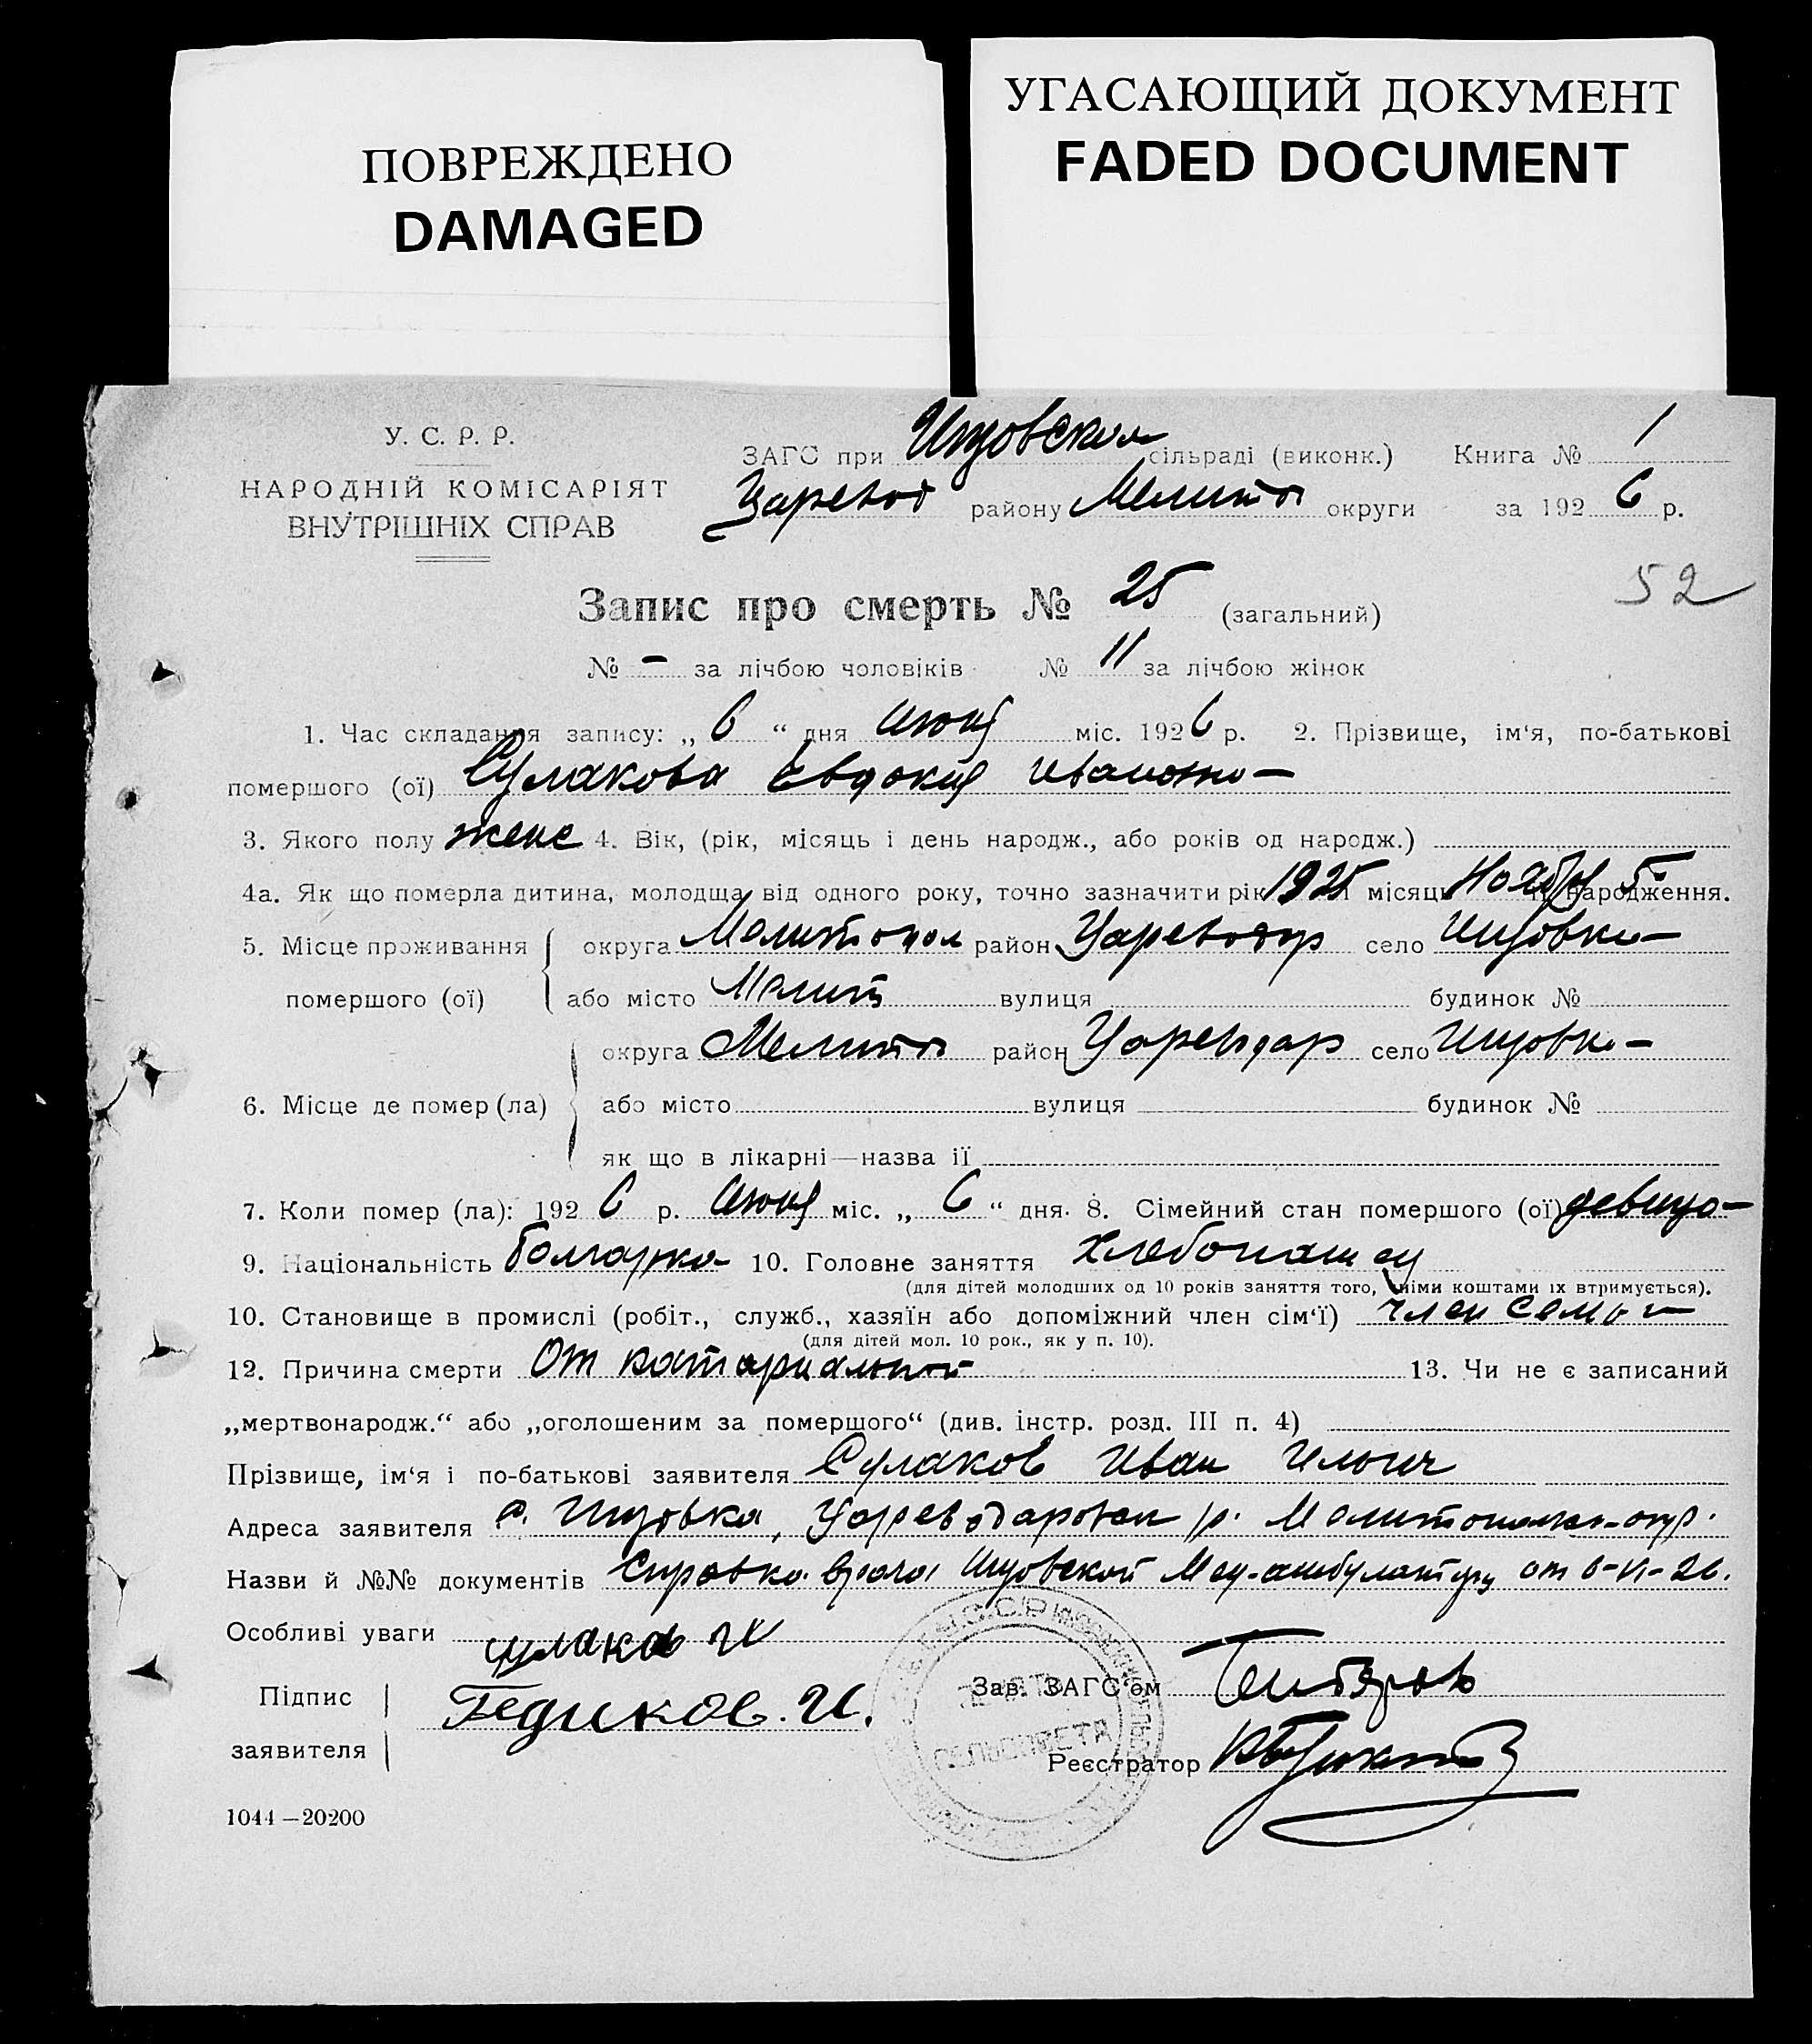 ПОВРЕЖДЕНО
DAMAGED
УГАСАЮЩИЙ ДОКУМЕНТ
FADED DOCUMENT
У. С. Р. Р.
НАРОДНІЙ КОМІСАРІЯТ
ВНУТРІШНІХ СПРАВ
ЗАГС при сільраді (виконк.) Книга № 1
Царевод району Мелитоп округи за 1926 р.
52
Запис про смерть № 25 (загальний)
№ – за лічбою чоловіків № 11 за лічбою жінок
1. Час складання запису: „ 6 “ дня июня міс. 1926 р. 2. Прізвище, ім‘я, по-батькові
помершого (ої) Сулакова Евдокия Ивановна
3. Якого полу женс 4. Вік, (рік, місяць і день народж., або років од народж.)
4а. Як що померла дитина, молодща від одного року, точно зазначити рік 1925 місяць Ноября 5 народження.
5. Місце проживання округа Мелитопол район Цареводар село
помершого (ої) або місто Мелит вулиця будинок №
округа Мелитоп район Цареводар село
6. Місце де помер (ла) або місто вулиця будинок №
як що в лікарні—назва її
7. Коли помер (ла): 1926 р. июня міс. „ 6 “ дня. 8. Сімейний стан помершого (ої) девица
9. Національність болгарка 10. Головне заняття хлебопашец
(для дітей молодших од 10 років заняття того, чиїми коштами їх втримується).
10. Становище в промислі (робіт., служб., хазяїн або допоміжний член сім‘ї) член семьи
(для дітей мол. 10 рок., як у п. 10).
12. Причина смерти От 13. Чи не є записаний
„мертвонародж.“ або „оголошеним за помершого“ (див. інстр. розд. III п. 4)
Прізвище, ім‘я і по-батькові заявителя Сулаков Иван Ильич
Адреса заявителя с. Цареводаровск р. Мелитопольск. окр.
Назви й №№ документів Справка врача Мед-амбулатории от 6-VI-26.
Особливі уваги
Сулаков И
Підпис
заявителя
Зав. ЗАГС‘ом
СЕЛЬСОВЕТА
Реєстратор
1044—20200